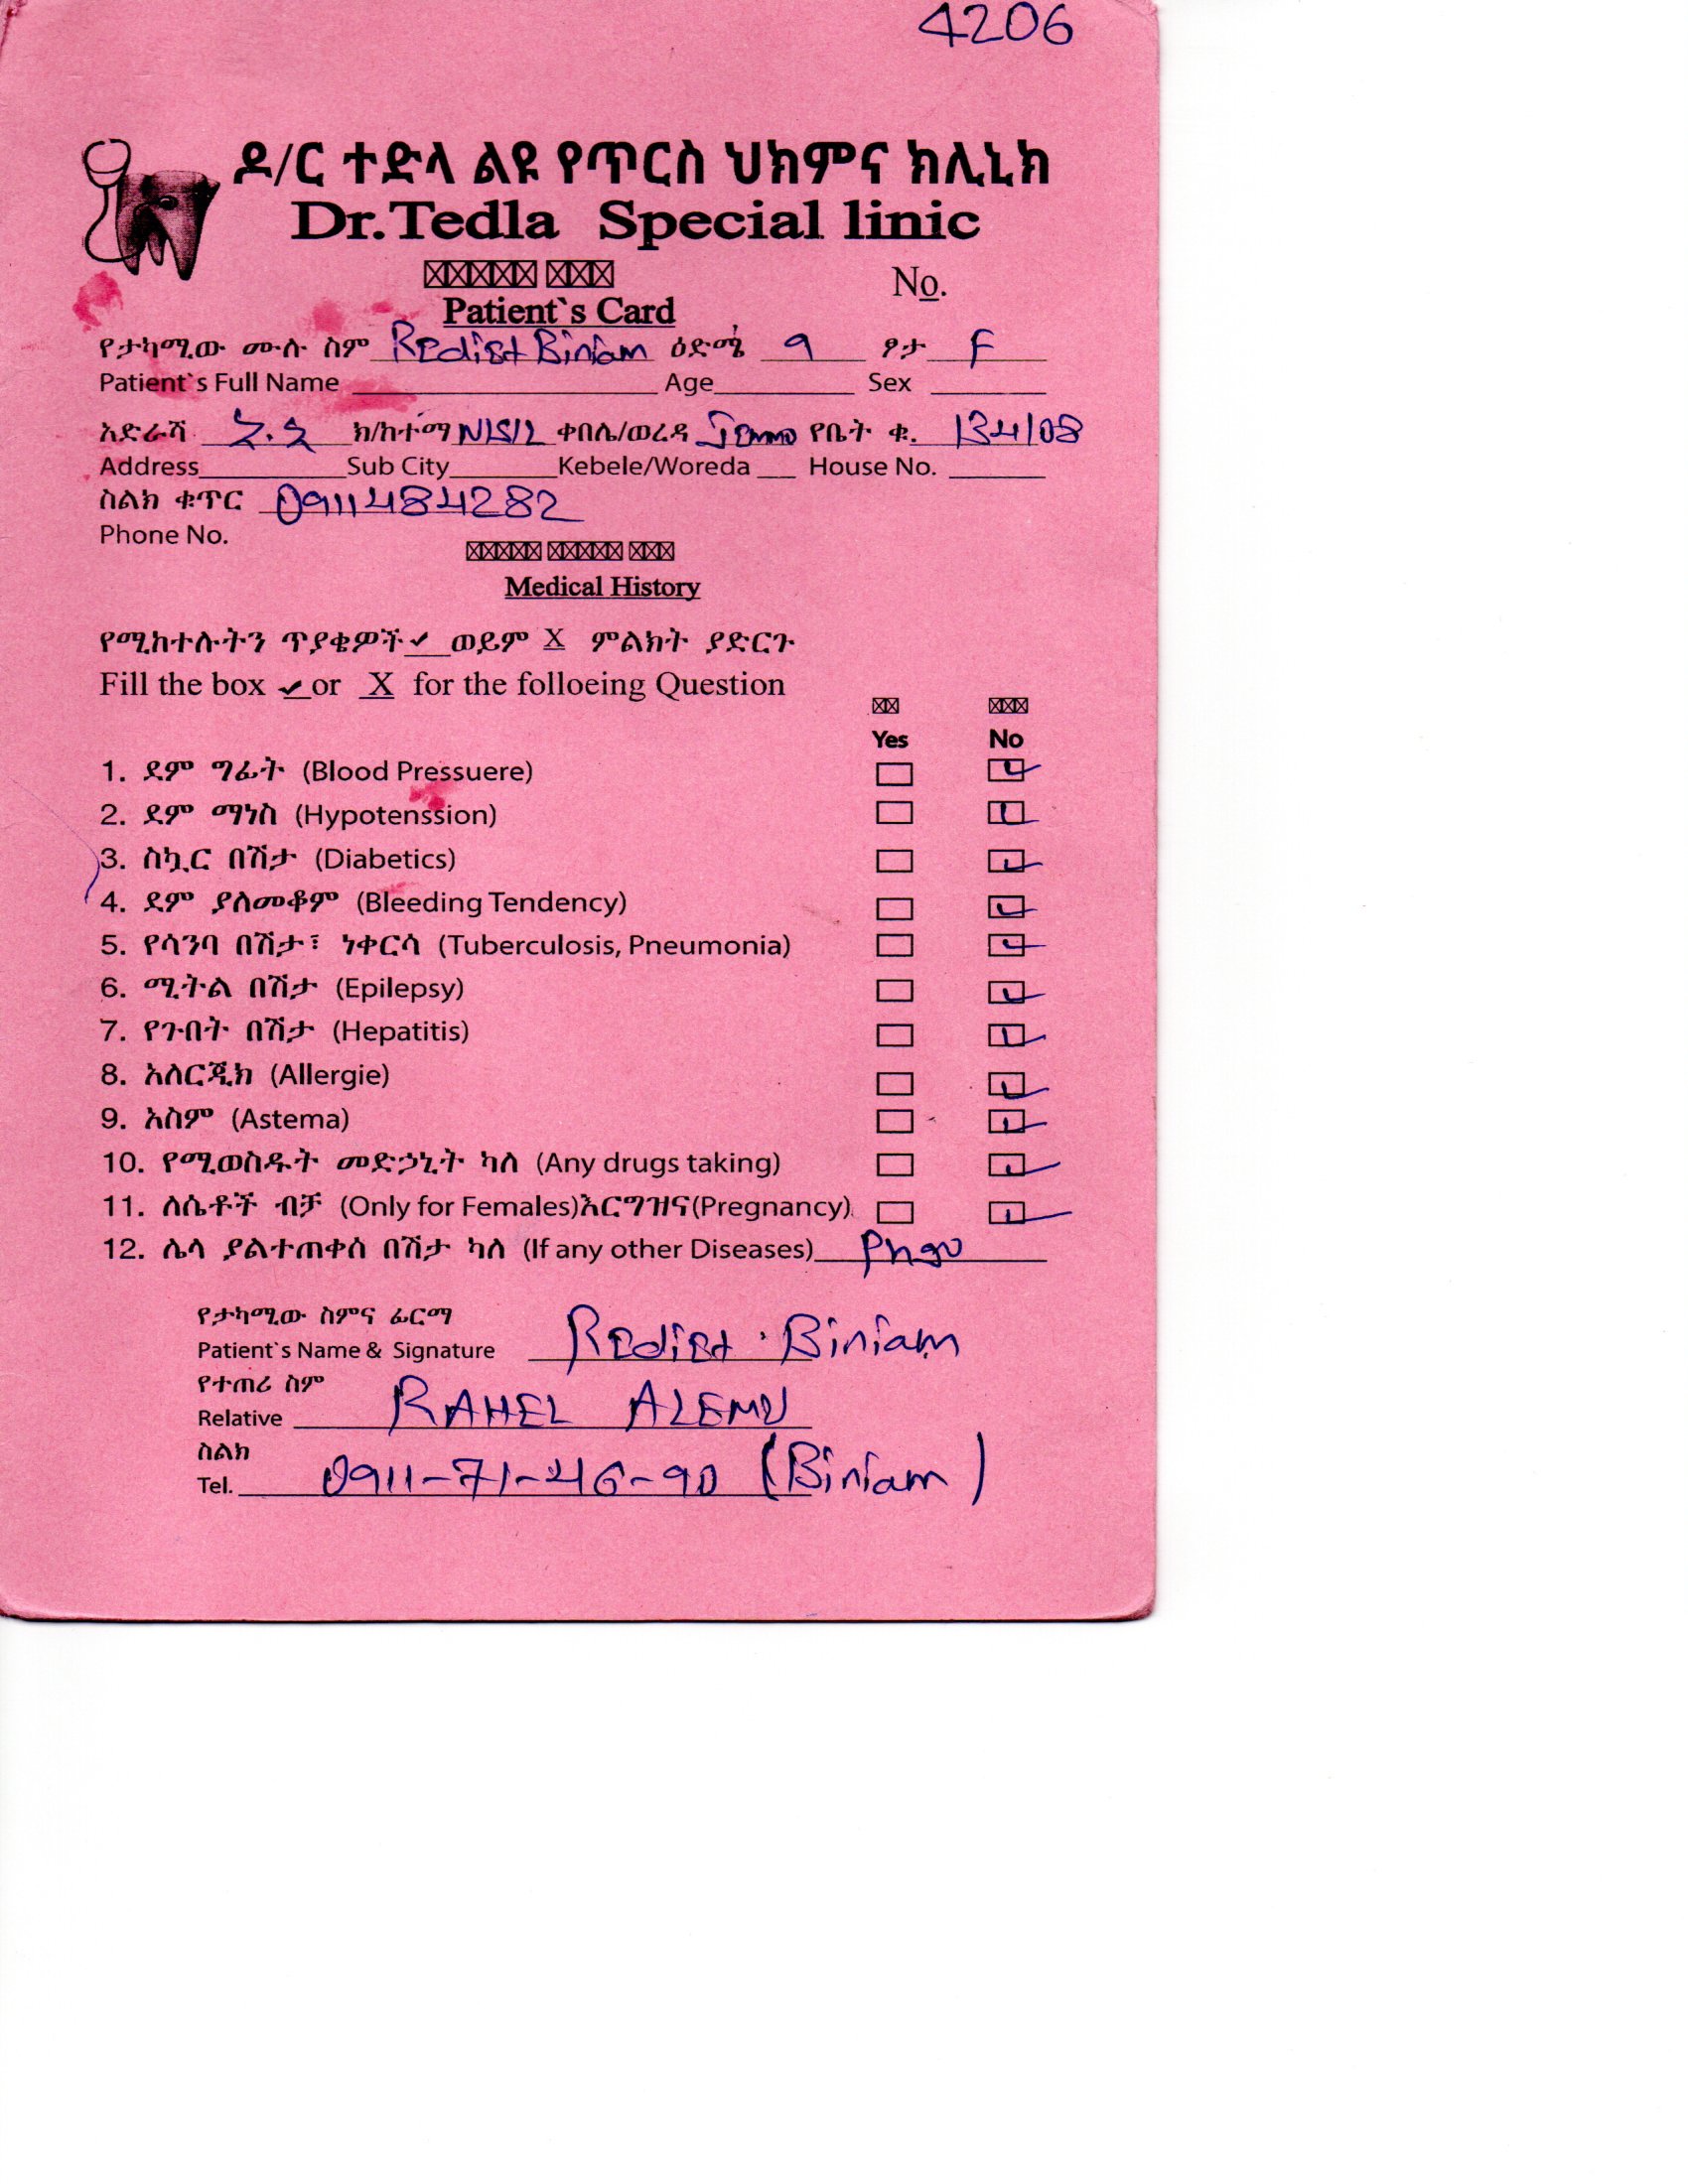 4206
ዶ/ር ተድላ ልዩ የጥርስ ህክምና ክሊኒክ
Dr.Tedla Special linic
No.
Patient`s Card
የታካሚው ሙሉ ስም Rediet Biniam ዕድሜ 9 ፆታ F
Patient`s Full Name Age Sex
አድራሻ አ.አ ክ/ከተማ N/S/L ቀበሌ/ወረዳ Jemmo የቤት ቁ. 134/08
Address Sub City Kebele/Woreda House No.
ስልክ ቁጥር 0911484282
Phone No.
Medical History
የሚከተሉትን ጥያቄዎች ✓ ወይም X ምልክት ያድርጉ
Fill the box ✓ or X for the folloeing Question
Yes No
1. ደም ግፊት (Blood Pressuere)
2. ደም ማነስ (Hypotenssion)
3. ስኳር በሽታ (Diabetics)
4. ደም ያለመቆም (Bleeding Tendency)
5. የሳንባ በሽታ፣ ነቀርሳ (Tuberculosis, Pneumonia)
6. ሚትል በሽታ (Epilepsy)
7. የጉበት በሽታ (Hepatitis)
8. አለርጂክ (Allergie)
9. አስም (Astema)
10. የሚወስዱት መድኃኒት ካለ (Any drugs taking)
11. ለሴቶች ብቻ (Only for Females)እርግዝና(Pregnancy)
12. ሌላ ያልተጠቀሰ በሽታ ካለ (If any other Diseases) የለም
የታካሚው ስምና ፊርማ
Patient`s Name & Signature Rediet . Biniam
የተጠሪ ስም
Relative RAHEL ALEMU
ስልክ
Tel. 0911-71-46-90 (Biniam)